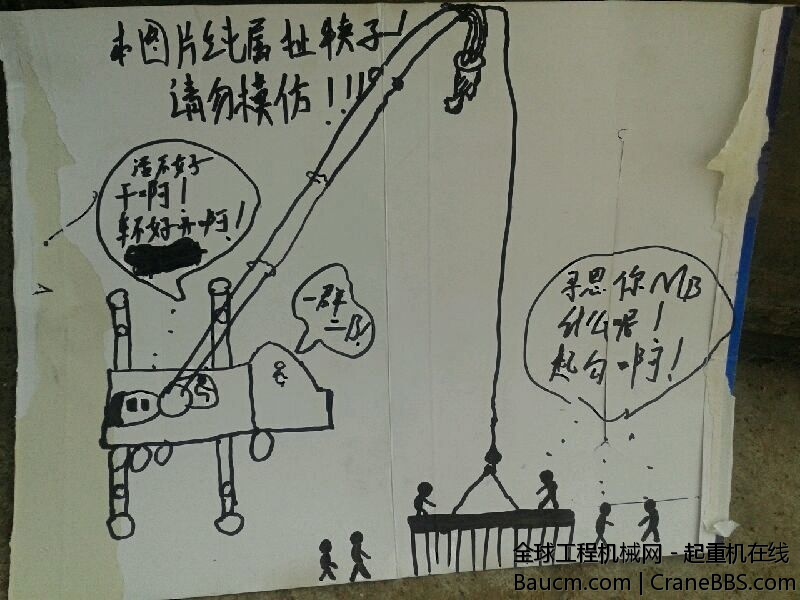 本图片纯属扯筷子!
请勿模仿!!!
活不好
干啊!
车不好开啊!
一群
二B!
寻思你MB
什么呢!
起勾啊!
全球工程机械网 - 起重机在线
Baucm.com | CraneBBS.com